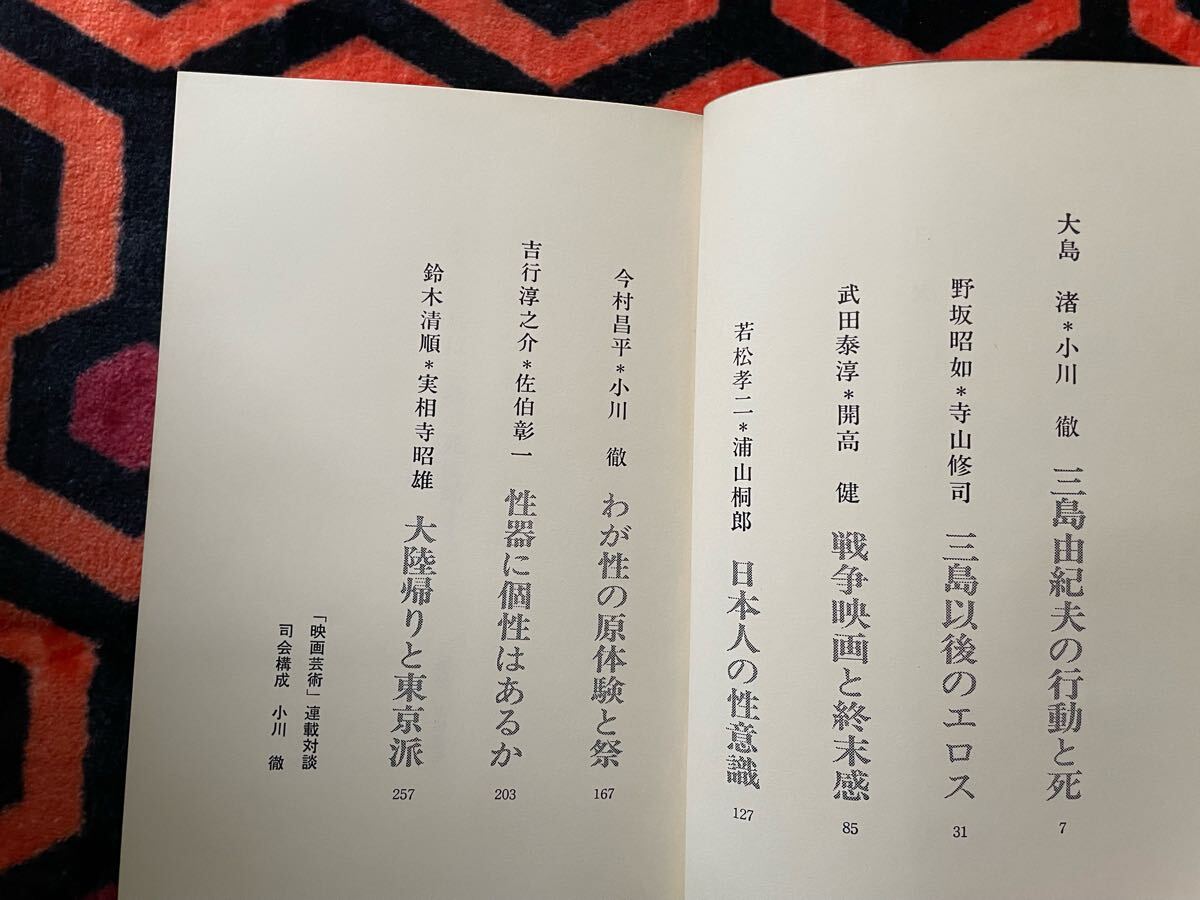 大島　渚*小川　徹　三島由紀夫の行動と死 7
野坂昭如*寺山修司　三島以後のエロス 31
武田泰淳*開高　健　戦争映画と終末感 85
若松孝二*浦山桐郎　日本人の性意識 127
今村昌平*小川　徹　わが性の原体験と祭 167
吉行淳之介*佐伯彰一　性器に個性はあるか 203
鈴木清順*実相寺昭雄　大陸帰りと東京派 257
「映画芸術」連載対談
司会構成　小川　徹